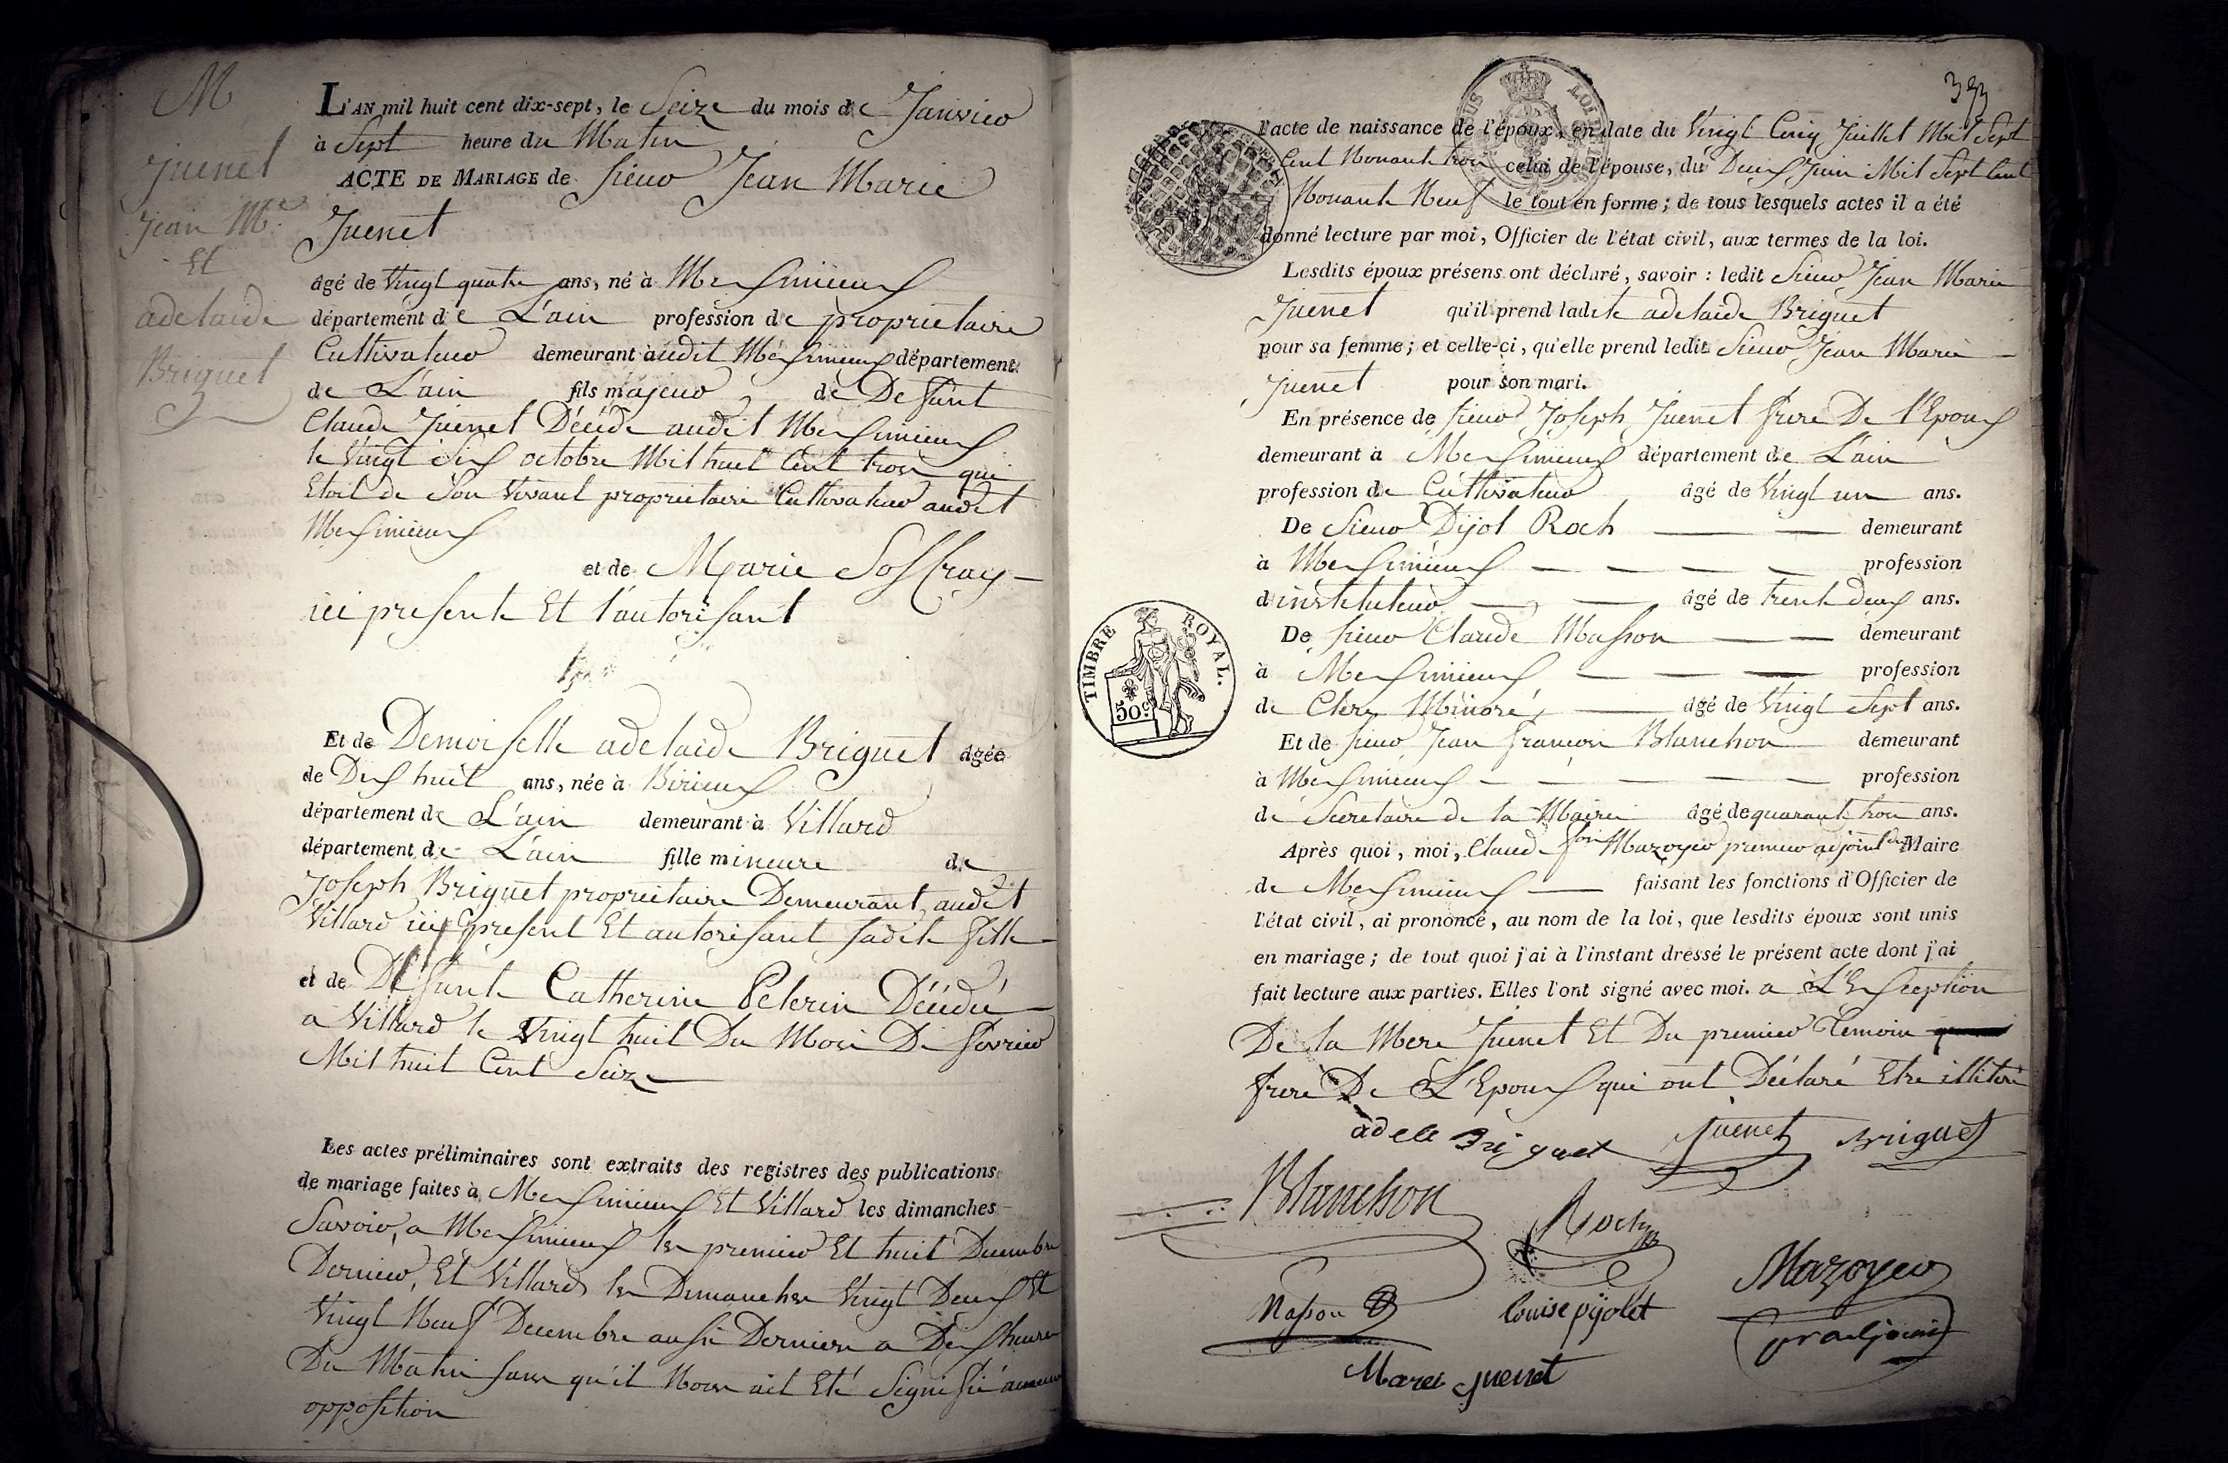 M
Juenet
Jean M.e
Et
adelaide
Briguet
L'AN mil huit cent dix-sept, le Seize du mois de Janvier
à Sept heure du Matin
ACTE DE MARIAGE de Sieur Jean Marie
Juenet
âgé de Vingt quatre ans, né à Messimieux
département de L'ain profession de propriétaire
Cultivateur demeurant audit Messimieux département
de L'ain fils majeur de Defunt
Claude Juenet Décédé audit Messimieux
le Vingt Six octobre Mil huit Cent trois qui
Etoit de Son Vivant propriétaire Cultivateur audit
Messimieux
et de Marie
ici presente Et l'autorisant
Et de Demoiselle adelaide Briguet âgée
de Dix huit ans, née à Birieux
département de L'ain demeurant à Villard
département de L'ain fille mineure de
Joseph Briguet propriétaire Demeurant audit
Villard ici present Et autorisant sadite fille
et de Defunte Catherine Pelerin Décédée
a Villard le Vingt huit Du Mois De fevrier
Mil huit Cent Seize
Les actes préliminaires sont extraits des registres des publications
de mariage faites à Messimieux Et Villard les dimanches
Savoir, a Messimieux les premier Et huit Decembre
Dernier, Et Villard les Dimanches Vingt Deux Et
Vingt Neuf Decembre aussi Dernier a Dix heures
Du Matin sans qu'il Nous ait Eté Signifié aucune
opposition
TIMBRE ROYAL.
50c
l'acte de naissance de l'époux, en date du Vingt Cinq Juillet Mil Sept
Cent Nonante trois celui de l'épouse, du Deux Juin Mil Sept Cent
Nonante Neuf le tout en forme; de tous lesquels actes il a été
donné lecture par moi, Officier de l'état civil, aux termes de la loi.
Lesdits époux présens ont déclaré, savoir : ledit Sieur Jean Marie
Juenet qu'il prend ladite adelaide Briguet
pour sa femme; et celle-ci, qu'elle prend ledit Sieur Jean Marie
Juenet pour son mari.
En présence de Sieur Joseph Juenet frere De l'Epoux
demeurant à Messimieux département de L'ain
profession de Cultivateur âgé de Vingt un ans.
De Sieur Dijol Roch demeurant
à Messimieux profession
d'instituteur âgé de trente deux ans.
De Sieur Claude Masson demeurant
à Messimieux profession
de Clerc Minoré, âgé de Vingt Sept ans.
Et de Sieur Jean francois Blanchon demeurant
à Messimieux profession
de Secretaire de la Mairie âgé de quarante trois ans.
Après quoi, moi, Claude fois Mazoyer premier adjoint du Maire
de Messimieux faisant les fonctions d'Officier de
l'état civil, ai prononcé, au nom de la loi, que lesdits époux sont unis
en mariage; de tout quoi j'ai à l'instant dressé le présent acte dont j'ai
fait lecture aux parties. Elles l'ont signé avec moi. a L'Exception
De la Mere Juenet Et Du premier Temoin
frere De L'Epoux qui ont Déclaré Etre illitéré
adele Briguet Juenet Briguet
Blanchon
Roch
Mazoyer
Masson
Louise pijolet
pr adjoint
Juenet